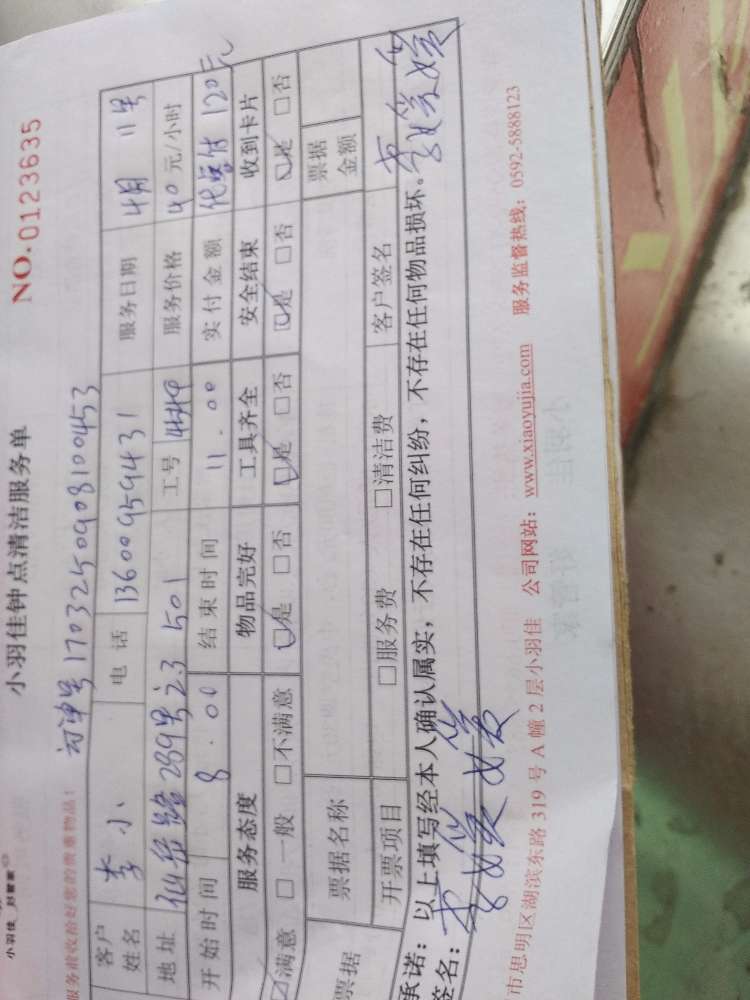 小羽佳 好管家
小羽佳钟点清洁服务单
NO.0123635
服务前收拾好您的贵重物品!
订单号 17032509081 00453
客户姓名 李小 电话 13600959431 服务日期 4月11号
地址 仙岳路289号之3 501 工号 服务价格 40元/小时
开始时间 8.00 结束时间 11.00 实付金额 120元
服务态度 物品完好 工具齐全 安全结束 收到卡片
☑满意 □一般 □不满意 ☑是 □否 ☑是 □否 ☑是 □否 ☑是 □否
票据 票据名称 票据金额
开票项目 □服务费 □清洁费 客户签名
承诺:以上填写经本人确认属实,不存在任何纠纷,不存在任何物品损坏。
签名:
市思明区湖滨东路 319 号 A 幢 2 层小羽佳 公司网站:www.xiaoyujia.com 服务监督热线:0592-5888123